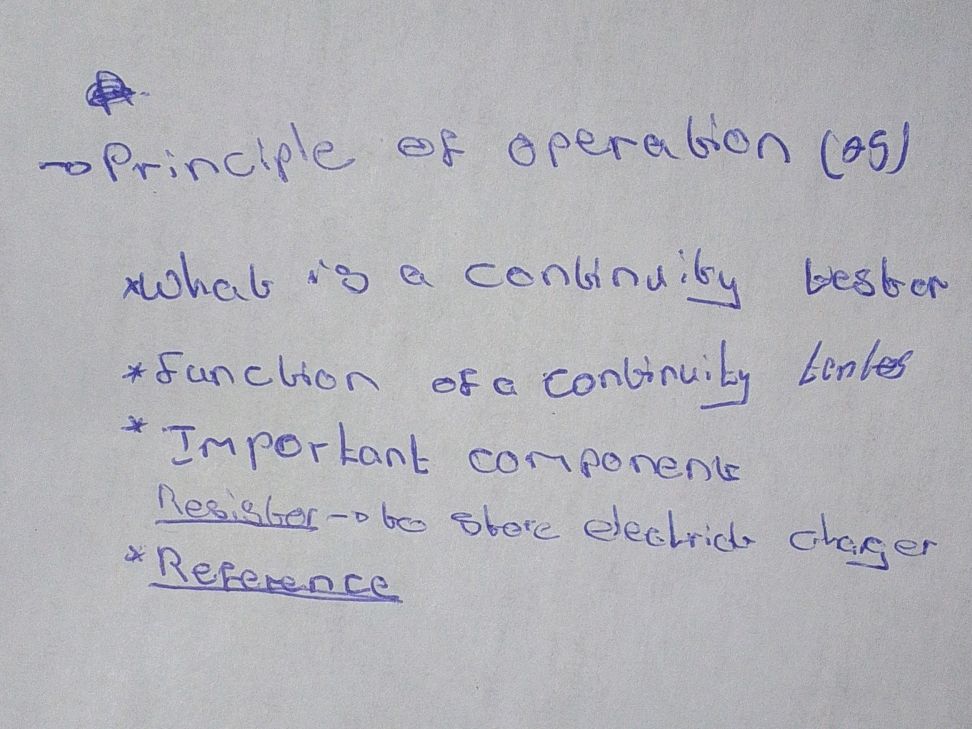 → Principle of operation (05)
*What is a continuity tester
*function of a continuity
* Important components
Resistor → to store electrick chager
* Reference